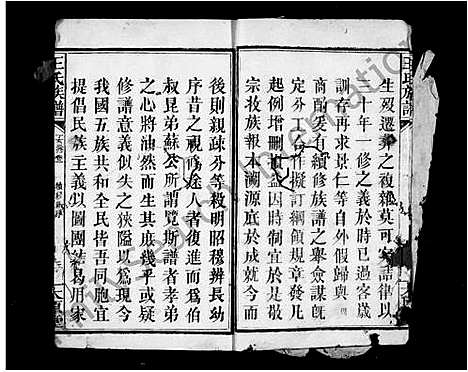 王氏族譜
生殁遷葬之複雜莫可究詰律以
三十年一修之義於時已過客歲
訓存再求景仁等自外假歸與
商酌爰有續修族譜之舉僉謀旣
定分工合作擬訂綱領規章發凡
起例增刪損益因時制宜於是敬
宗收族報本溯源庭於成就今而
後則親疎分等殺明昭穆辨長幼
序昔之視爲途人者復進而爲伯
叔昆弟蘇公所謂覽斯譜者孝弟
之心將油然而生其庶乎或疑
修譜意義似失之狹隘以爲現今
我國五族共和全民皆吾同胞宜
提倡民族主義以圖團結烏用家
王氏族譜